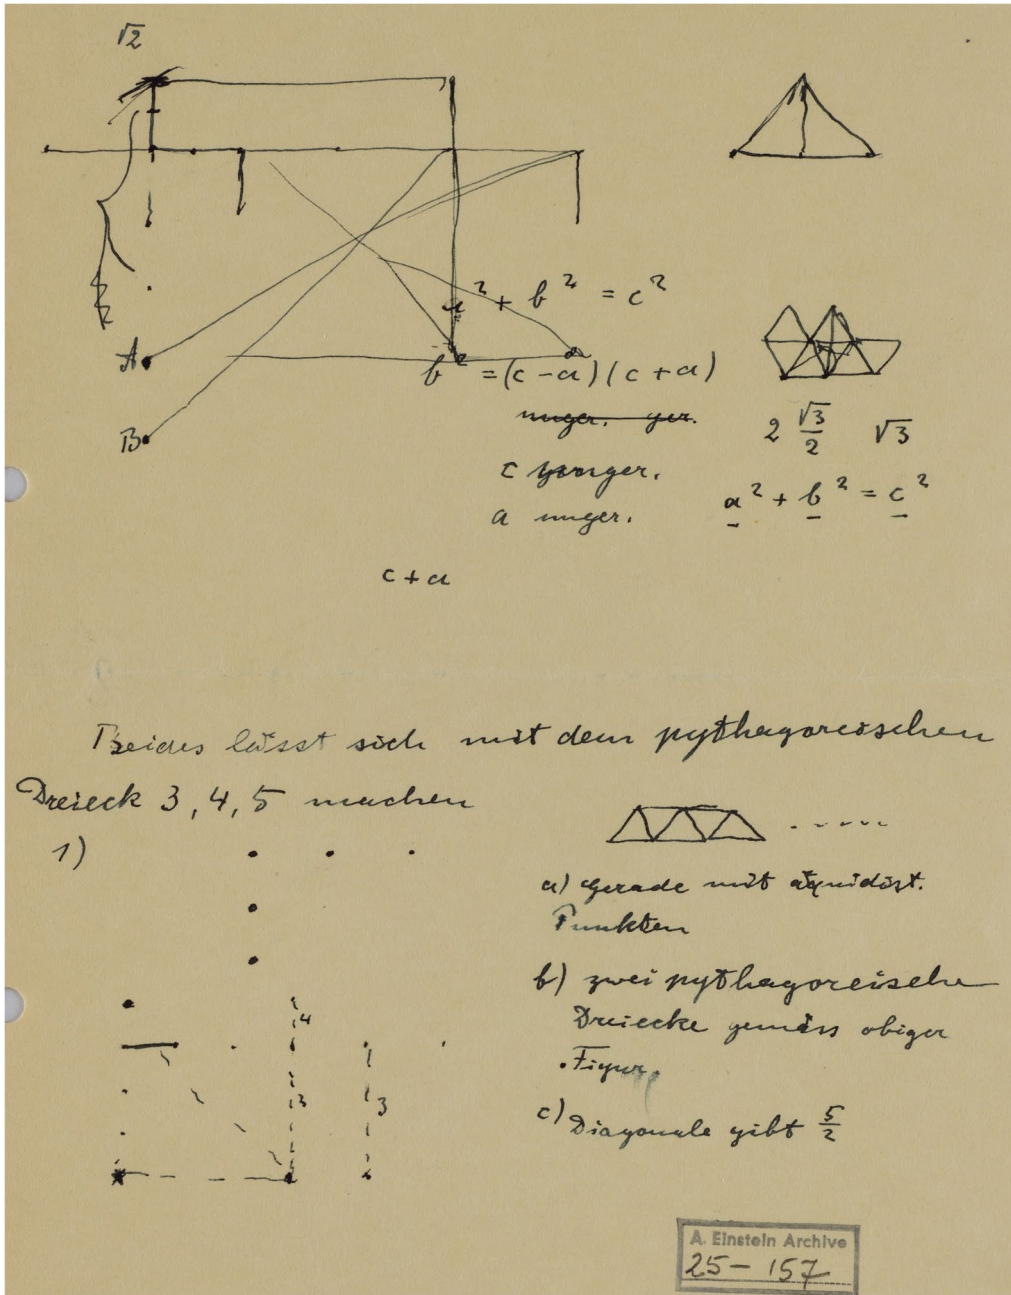 √2
a² + b² = c²
b² = (c - a) (c + a)
unger. ger.
c unger.
a unger.
2 √3/2 √3
a² + b² = c²
c + a
A
B
Beides lässt sich mit dem pythagoreischen
Dreieck 3, 4, 5 machen
1)
a) Gerade mit äquidist.
Punkten
b) zwei pythagoreische
Dreiecke gemäss obiger
Figur.
c) Diagonale gibt 5/2
4
3
3
A. Einstein Archive
25 - 157